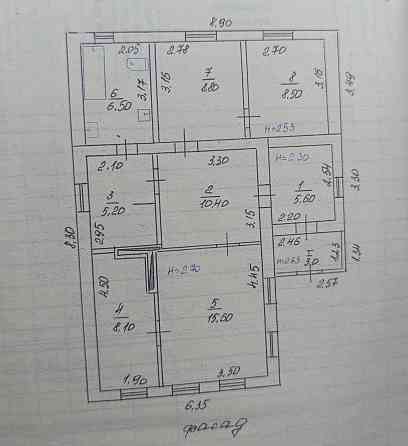 8.90
2.05
2.78
2.70
6
6.50
3.17
3.15
7
8.80
8
8.50
3.15
3.49
н=2.53
2.10
3.30
н=2.30
2.54
3
5.20
2
10.40
1
5.60
3.30
2.95
3.15
2.20
8.30
2.46
1.34
4.50
н=2.70
4.45
2.57
4
8.10
5
15.60
1.90
3.50
6.35
фасад